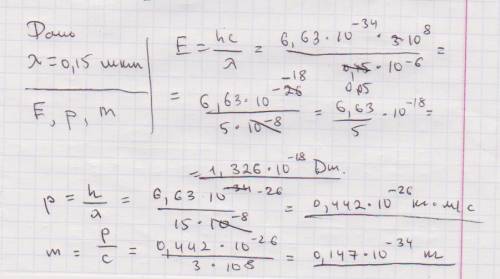 Дано
λ = 0,15 мкм
E, p, m
E = hc/λ = 6,63 · 10^-34 · 3 · 10^8 / 0,15 · 10^-6 =
0,05
= 6,63 · 10^-26 -18 / 5 · 10^-8 = 6,63/5 · 10^-18 =
= 1,326 · 10^-18 Дж.
p = h/λ = 6,63 · 10^-34 -26 / 15 · 10^-8 = 0,442 · 10^-26 кг · м/с
m = p/c = 0,442 · 10^-26 / 3 · 10^8 = 0,147 · 10^-34 кг